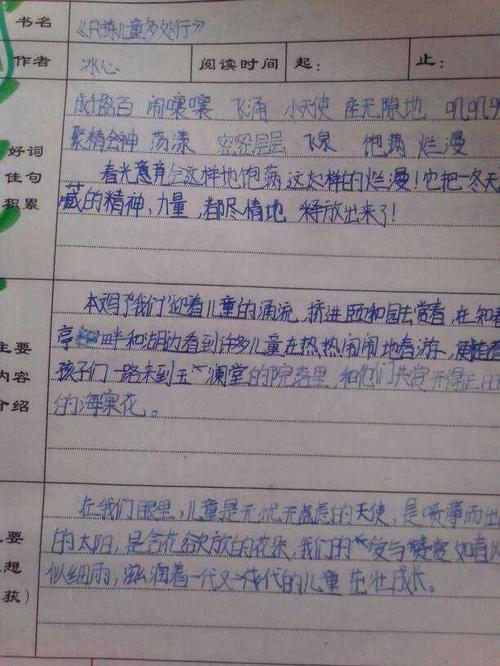 书名 《只拣儿童多处行》
作者 冰心 阅读时间 起: 止:
好词佳句积累
成千盈百 闹嚷嚷 飞涌 小天使 座无隙地 叽叽
聚精会神 荡漾 密密层层 飞泉 饱满 烂漫
春光竟会这样地饱满,这太样的烂漫!它把一冬天
藏的精神、力量,都尽情地 释放出来了!
主要内容介绍
本课了"我们"迎着儿童的涌流,挤进颐和园去赏春,在知春
亭畔和湖边看到许多儿童在热热闹闹地春游,
孩子们一路来到玉澜堂的院落里,和他们共赏开得正
的海棠花。
要想获)
在我们眼里,儿童是无忧无虑的天使,是喷薄而出
的太阳,是含苞欲放的花朵,我们的爱与赞赏如春
似细雨,滋润着一代又一代的儿童茁壮成长。